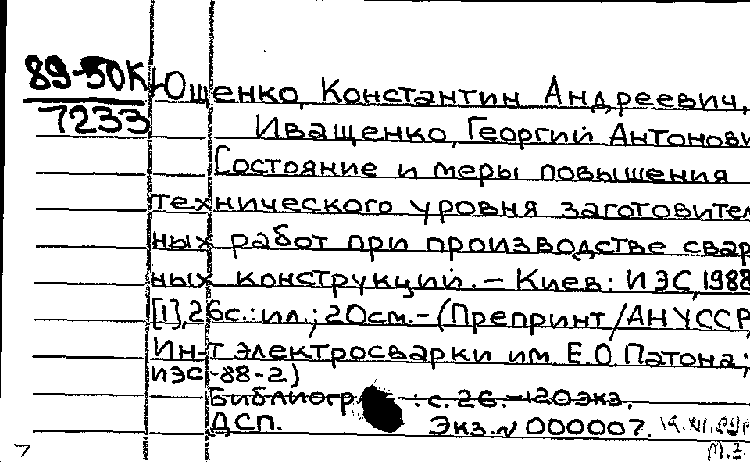 89-50К
7233
Ющенко, Константин Андреевич,
Иващенко, Георгий Антонови
Состояние и меры повышения
технического уровня заготовител
ных работ при производстве свар
ных конструкций. – Киев: ИЭС, 1988
[1], 26с.: ил.; 20см. – (Препринт/АН УССР,
Ин-т электросварки им. Е.О. Патона;
ИЭС-88-2)
Библиогр : с. 26. – 120экз.
ДСП. Экз. № 000007.